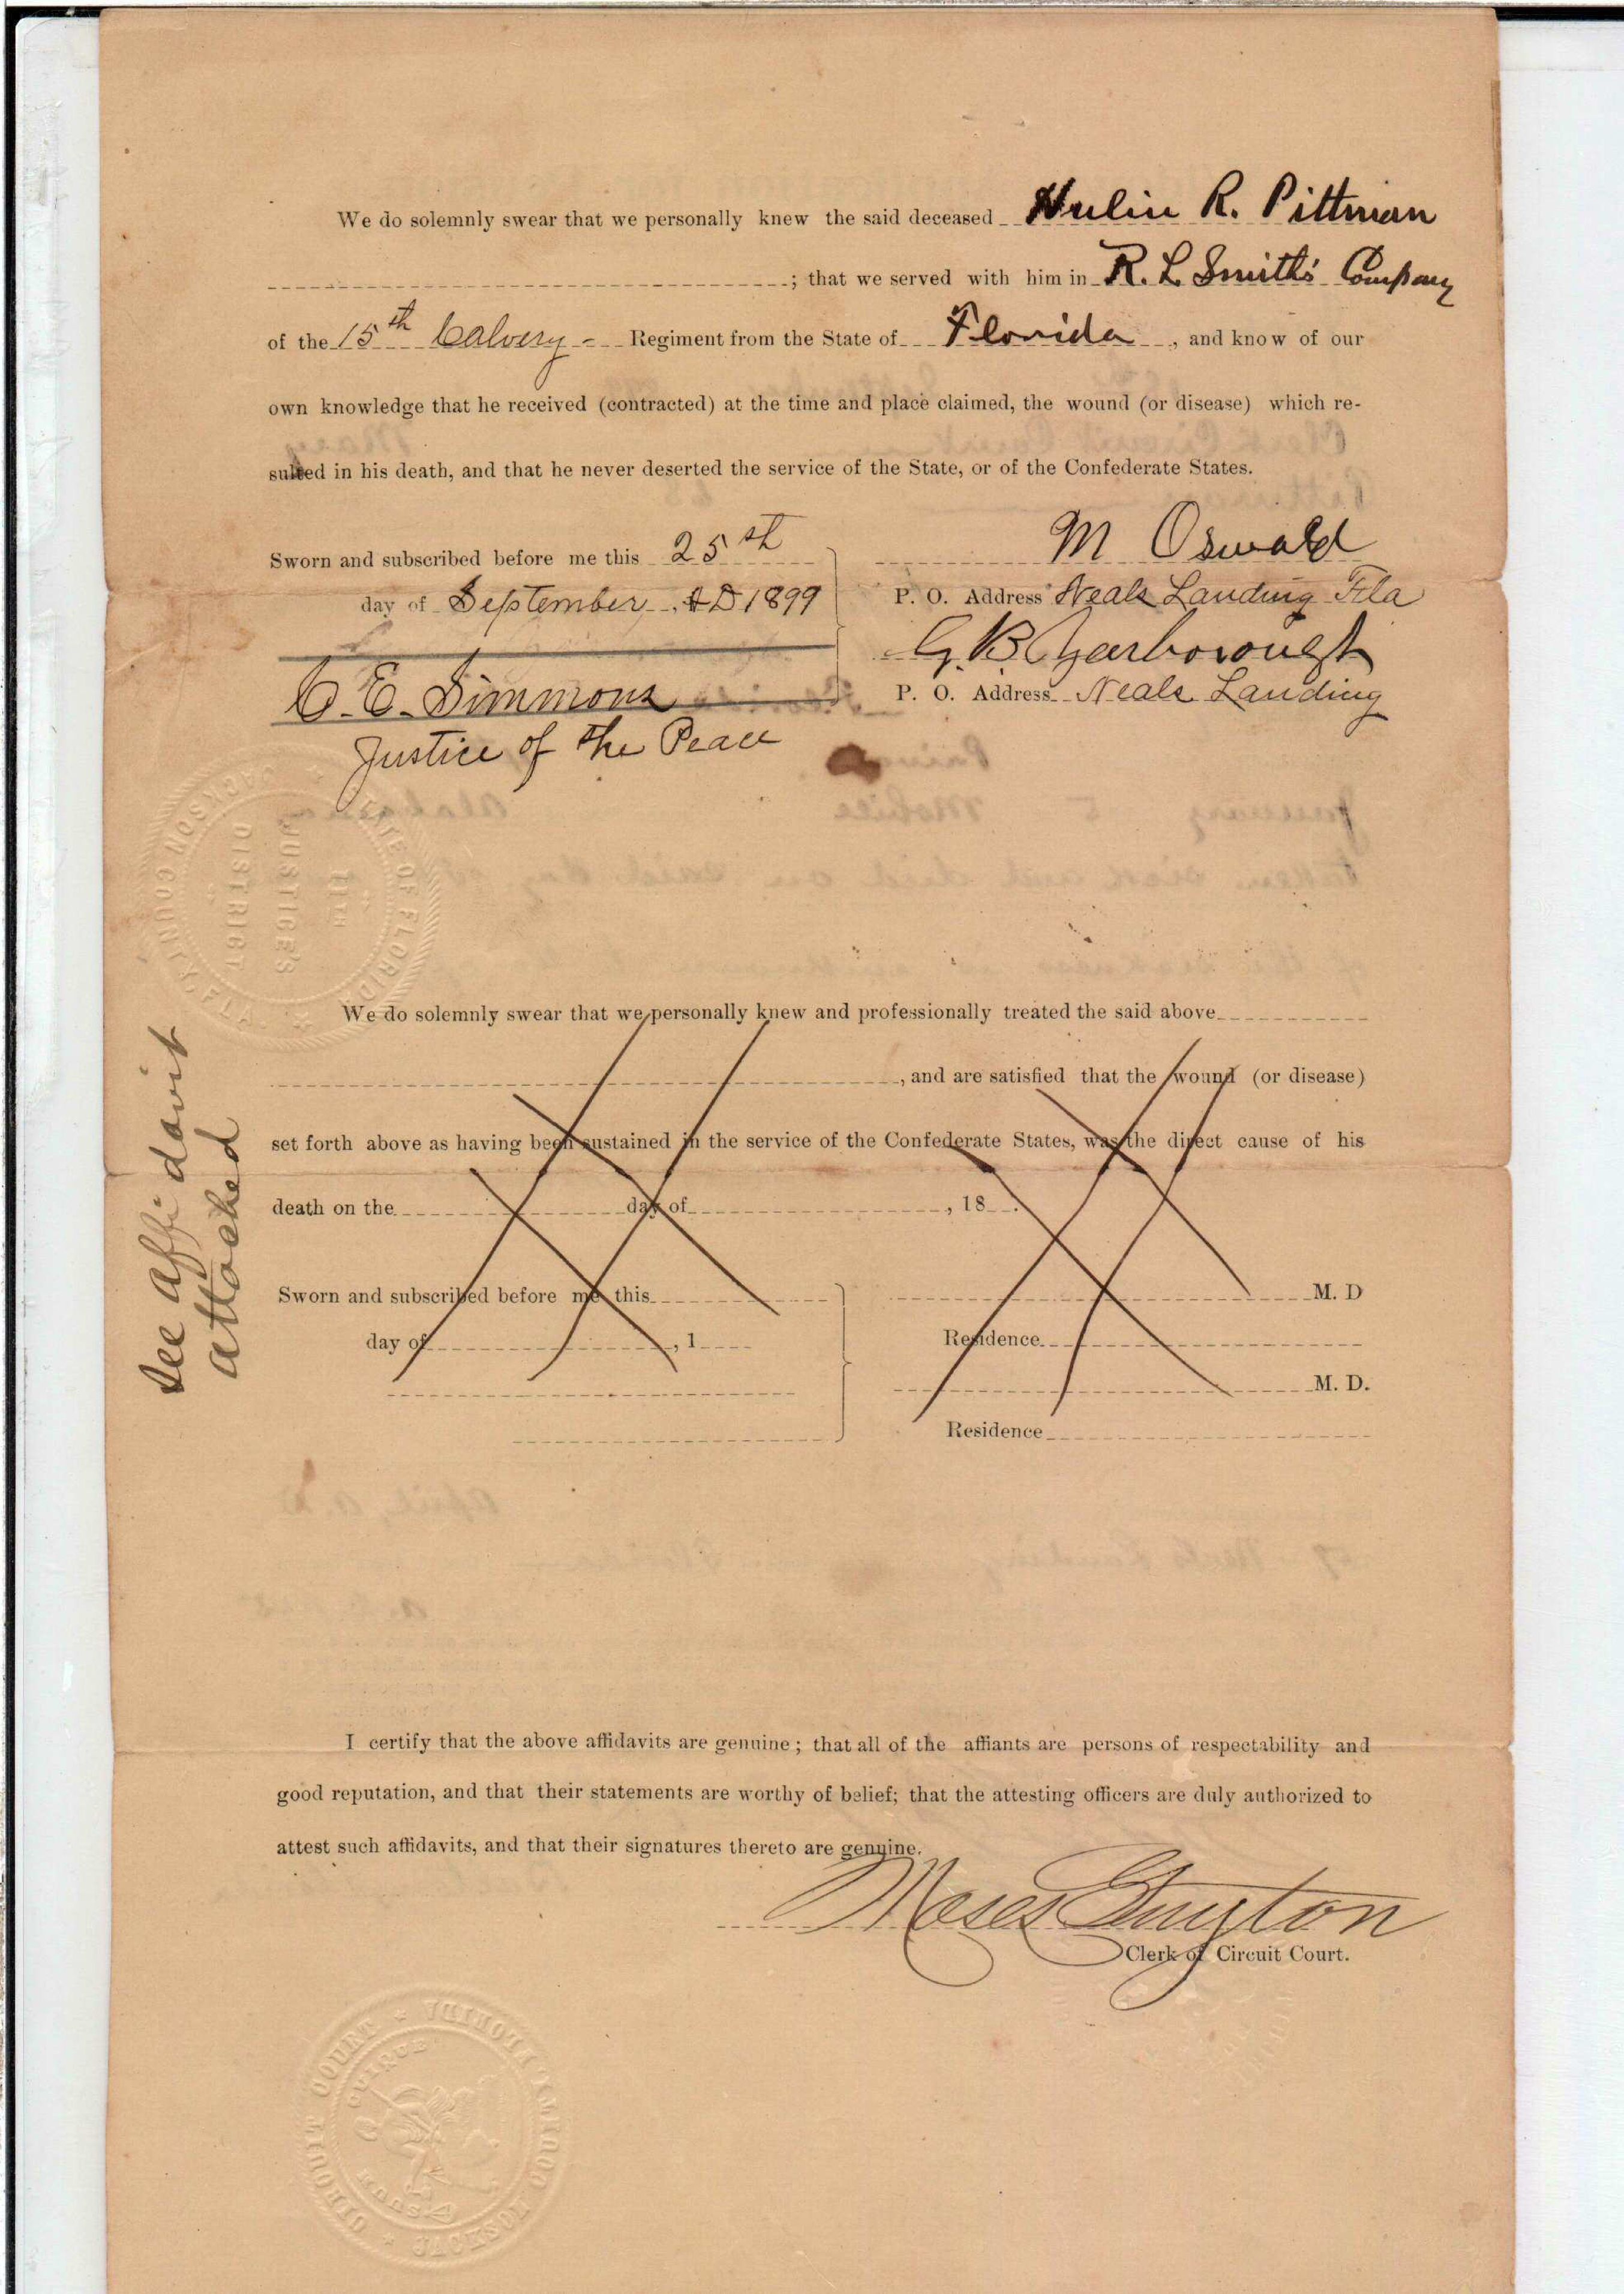 We do solemnly swear that we personally knew the said deceased Hulin R. Pittman
; that we served with him in R. L. Smith's Company
of the 15th Calvery - Regiment from the State of Florida, and know of our
own knowledge that he received (contracted) at the time and place claimed, the wound (or disease) which re-
sulted in his death, and that he never deserted the service of the State, or of the Confederate States.
Sworn and subscribed before me this 25st
day of September, AD 1899
C. E. Simmons
Justice of the Peace
M Oswald
P. O. Address Neals Landing Fla
G. B. Yarborough
P. O. Address Neals Landing
STATE OF FLORIDA
JACKSON COUNTY, FLA
11TH
JUSTICE'S
DISTRICT
See affidavit
attached
We do solemnly swear that we personally knew and professionally treated the said above
, and are satisfied that the wound (or disease)
set forth above as having been sustained in the service of the Confederate States, was the direct cause of his
death on the day of , 18 .
Sworn and subscribed before me this
day of , 1
M. D
Residence
M. D.
Residence
I certify that the above affidavits are genuine; that all of the affiants are persons of respectability and
good reputation, and that their statements are worthy of belief; that the attesting officers are duly authorized to
attest such affidavits, and that their signatures thereto are genuine.
Moses Guyton
Clerk of Circuit Court.
CIRCUIT COURT * JACKSON COUNTY, FLORIDA